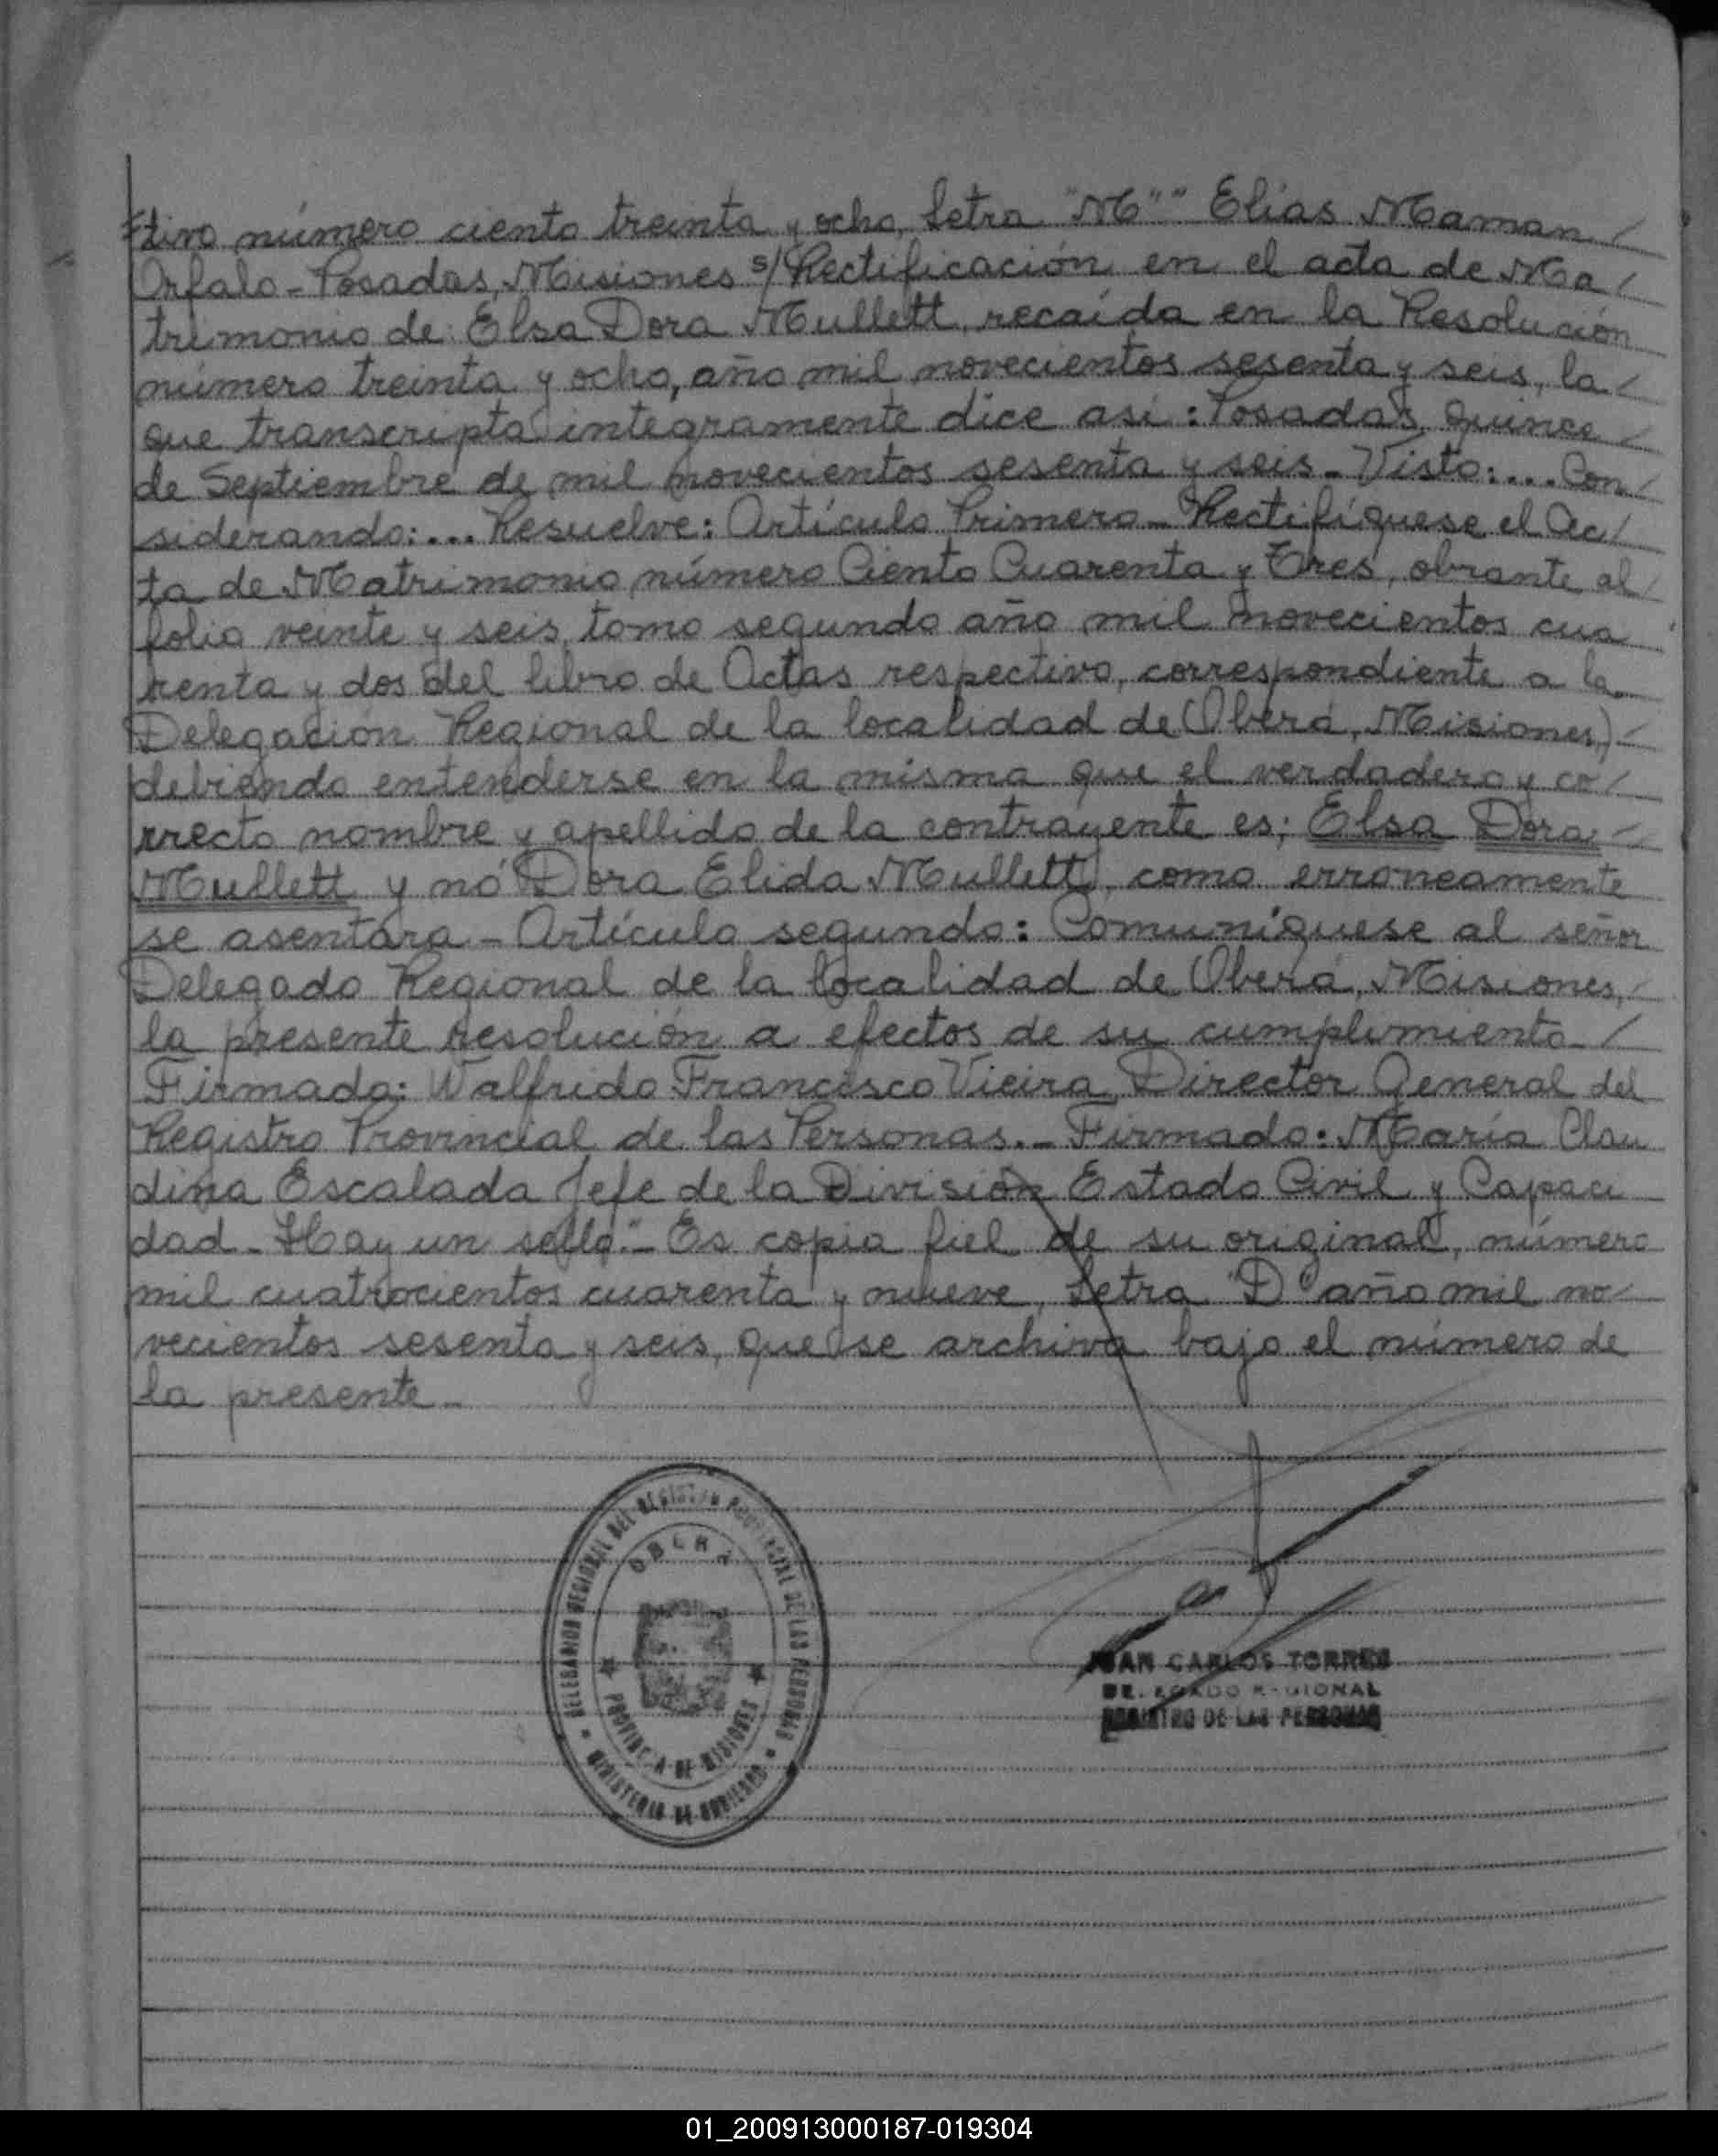 tivo número ciento treinta y ocho, Letra "M" " Elías Maman /
Orfalo - Posadas, Misiones s/ Rectificación en el acta de Ma /
trimonio de: Elsa Dora Mullett, recaída en la Resolución
número treinta y ocho, año mil novecientos sesenta y seis, la /
que transcripta integramente dice asi: Posadas, quince /
de Septiembre de mil novecientos sesenta y seis - Visto: ... Con /
siderando: ... Resuelve: Artículo Primero - Rectifíquese el Ac /
ta de Matrimonio número Ciento Cuarenta y Tres, obrante al /
folio veinte y seis, tomo segundo año mil novecientos cua
renta y dos del libro de Actas respectivo, correspondiente a la
Delegación Regional de la localidad de (Oberá, Misiones,) -
debiendo entenderse en la misma que el verdadero y co /
rrecto nombre y apellido de la contrayente es: Elsa Dora /
Mullett y nó Dora Elida Mullett, como erroneamente
se asentára - Artículo segundo: Comuníquese al señor
Delegado Regional de la localidad de Oberá, Misiones, /
la presente resolución a efectos de su cumplimiento - /
Firmado: Walfrido Francisco Vieira, Director General del
Registro Provincial de las Personas. - Firmado: María Clau
dina Escalada Jefe de la División Estado Civil y Capaci
dad - Hay un sello." - Es copia fiel de su original, número
mil cuatrocientos cuarenta y nueve, Letra "D" año mil no /
vecientos sesenta y seis, que se archiva bajo el número de
la presente -
DELEGACION REGIONAL DEL REGISTRO PROVINCIAL DE LAS PERSONAS
OBERA
PROVINCIA DE MISIONES
MINISTERIO DE GOBIERNO
JUAN CARLOS TORRES
DELEGADO REGIONAL
REGISTRO DE LAS PERSONAS
01_200913000187-019304